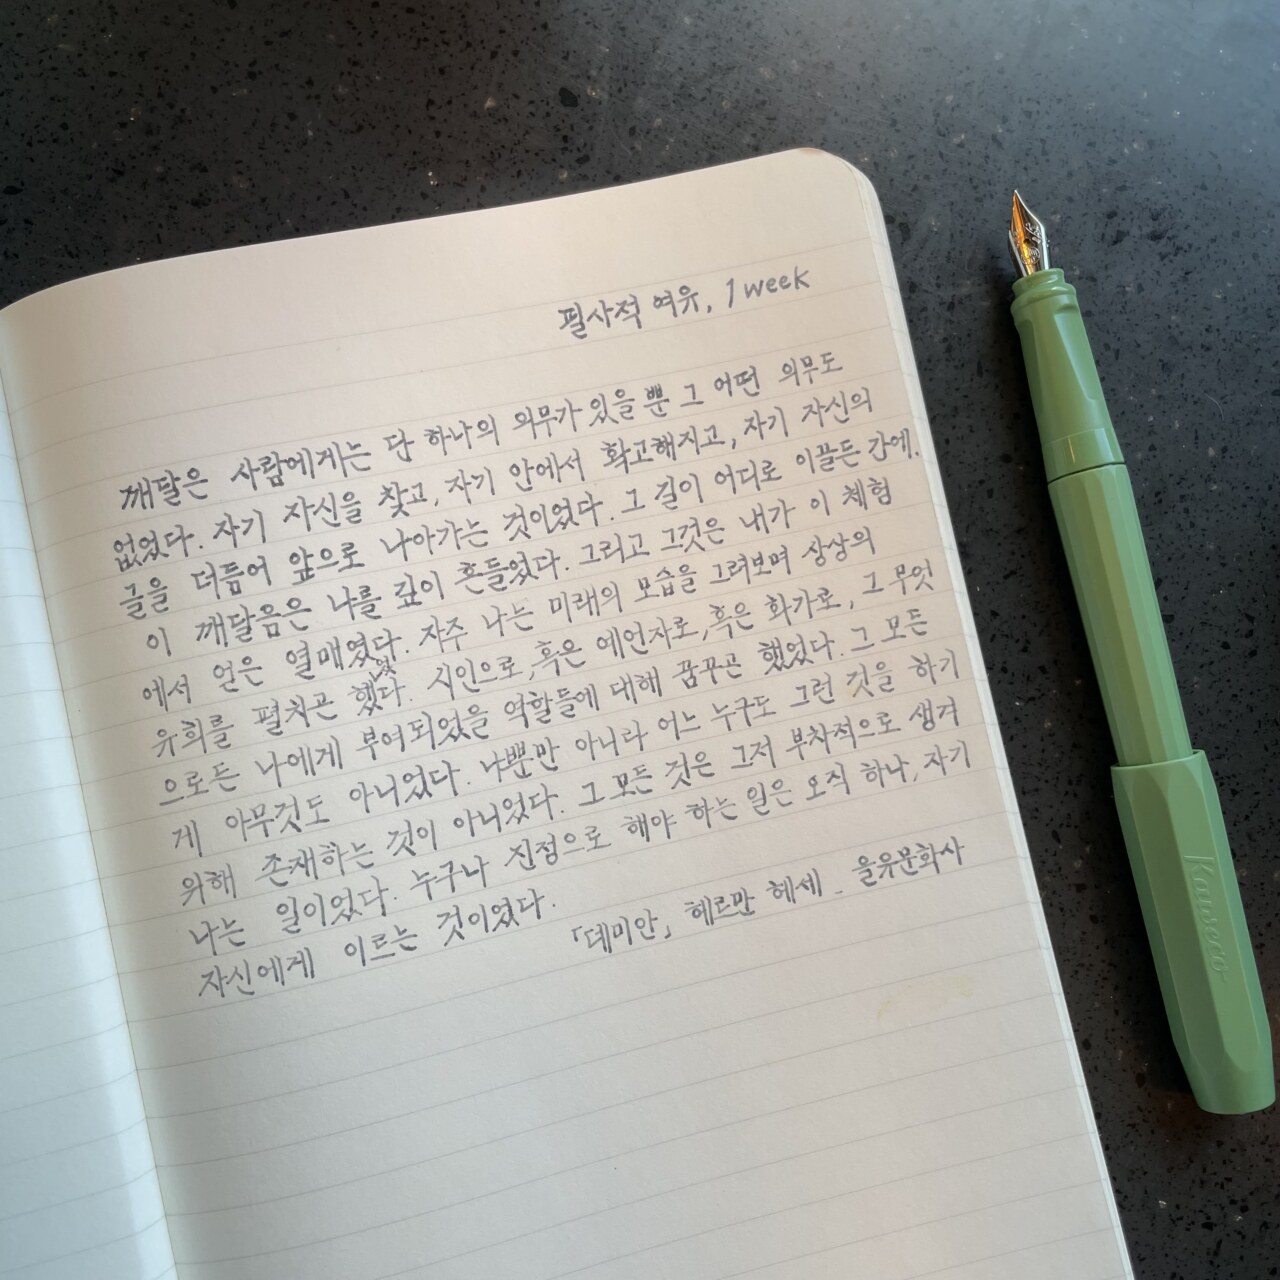 필사적 여유, 1 week
깨달은 사람에게는 단 하나의 의무가 있을 뿐 그 어떤 의무도
없었다. 자기 자신을 찾고, 자기 안에서 확고해지고, 자기 자신의
글을 더듬어 앞으로 나아가는 것이었다. 그 길이 어디로 이끌든 간에.
이 깨달음은 나를 깊이 흔들었다. 그리고 그것은 내가 이 체험
에서 얻은 열매였다. 자주 나는 미래의 모습을 그려보며 상상의
유희를 펼치곤 했었다. 시인으로, 혹은 예언자로, 혹은 화가로, 그 무엇
으로든 나에게 부여되었을 역할들에 대해 꿈꾸곤 했었다. 그 모든
게 아무것도 아니었다. 나뿐만 아니라 어느 누구도 그런 것을 하기
위해 존재하는 것이 아니었다. 그 모든 것은 그저 부차적으로 생겨
나는 일이었다. 누구나 진정으로 해야 하는 일은 오직 하나, 자기
자신에게 이르는 것이었다.
「데미안」 헤르만 헤세 - 을유문화사
Kaweco